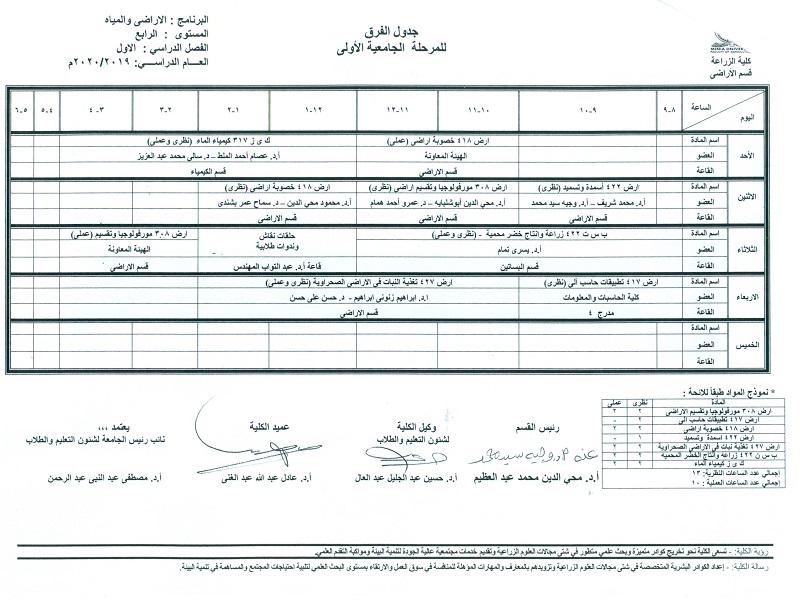 البرنامج : الاراضى والمياه
المستوى : الرابع
الفصل الدراسي : الاول
العام الدراسي: ٢٠٢٠/٢٠١٩م
جدول الفرق
للمرحلة الجامعية الأولى
MINIA UNIVER.
كلية الزراعة
قسم الأراضى
الساعة
اليوم
٨-٩
٩-١٠
١٠-١١
١١-١٢
١٢-١
١-٢
٢-٣
٣-٤
٤-٥
٥-٦
الأحد
اسم المادة
ارض ٤١٨ خصوبة اراضى (عملى)
ك ى ز ٣١٧ كيمياء الماء (نظرى وعملى)
العضو
الهيئة المعاونة
أ.د. عصام أحمد الملط – د. سالى محمد عبد العزيز
القاعة
قسم الاراضي
قسم الكيمياء
الاثنين
اسم المادة
ارض ٤٢٢ أسمدة وتسميد (نظرى)
ارض ٣٠٨ مورفولوجيا وتقسيم اراضى (نظرى)
ارض ٤١٨ خصوبة أراضى (نظرى)
العضو
أ.د. محمد شريف – أ.د. وجيه سيد محمد
أ.د. محي الدين أبوشلبايه – د. عمرو أحمد همام
أ.د. محمود محي الدين – د. سماح عمر بشندى
القاعة
قسم الاراضى
قسم الاراضى
قسم الاراضى
الثلاثاء
اسم المادة
ب س ت ٤٢٢ زراعة وانتاج خضر محمية - (نظرى وعملى)
حلقات نقاش
وندوات طلابية
ارض ٣٠٨ مورفولوجيا وتقسيم (عملى)
العضو
أ.د. يسرى تمام
الهيئة المعاونة
القاعة
قسم البساتين
قاعة أ.د. عبد التواب المهندس
قسم الاراضي
الاربعاء
اسم المادة
ارض ٤١٧ تطبيقات حاسب آلى (نظرى)
ارض ٤٢٧ تغذية النبات فى الاراضى الصحراوية (نظرى وعملى)
العضو
كلية الحاسبات والمعلومات
أ.د. ابراهيم زنونى ابراهيم – د. حسن على حسن
القاعة
مدرج ٤
قسم الاراضي
الخميس
اسم المادة
العضو
القاعة
* نموذج المواد طبقاً للانحة :
المادة نظرى عملى
ارض ٣٠٨ مورفولوجيا وتقسيم الاراضى ٢ ٢
ارض ٤١٧ تطبيقات حاسب آلى ٢ -
ارض ٤١٨ خصوبة اراضى ٢ ٢
ارض ٤٢٢ اسمدة وتسميد ١ -
ارض ٤٢٧ تغذية نبات فى الاراضى الصحراوية ٢ ٢
ب س ن ٤٢٢ زراعة وانتاج الخضر المحمية ٢ ٢
ك ى ز كيمياء الماء ٢ ٢
إجمالي عدد الساعات النظرية : ١٣
إجمالي عدد الساعات العملية : ١٠
رئيس القسم
أ.د. محي الدين محمد عبد العظيم
وكيل الكلية
لشنون التعليم والطلاب
أ.د. حسين عبد الجليل عبد العال
عميد الكلية
أ.د. عادل عبد الله عبد الغنى
يعتمد ،،،
نائب رئيس الجامعة لشنون التعليم والطلاب
أ.د. مصطفى عبد النبى عبد الرحمن
رؤية الكلية: - تسعى الكلية نحو تخريج كوادر متميزة وبحث علمي متطور في شتى مجالات العلوم الزراعية وتقديم خدمات مجتمعية عالية الجودة لتنمية البيئة ومواكبة التقدم العلمي.
رسالة الكلية: - إعداد الكوادر البشرية المتخصصة في شتى مجالات العلوم الزراعية وتزويدهم بالمعارف والمهارات المؤهلة للمنافسة في سوق العمل والارتقاء بمستوى البحث العلمي لتلبية احتياجات المجتمع والمساهمة في تنمية البيئة.